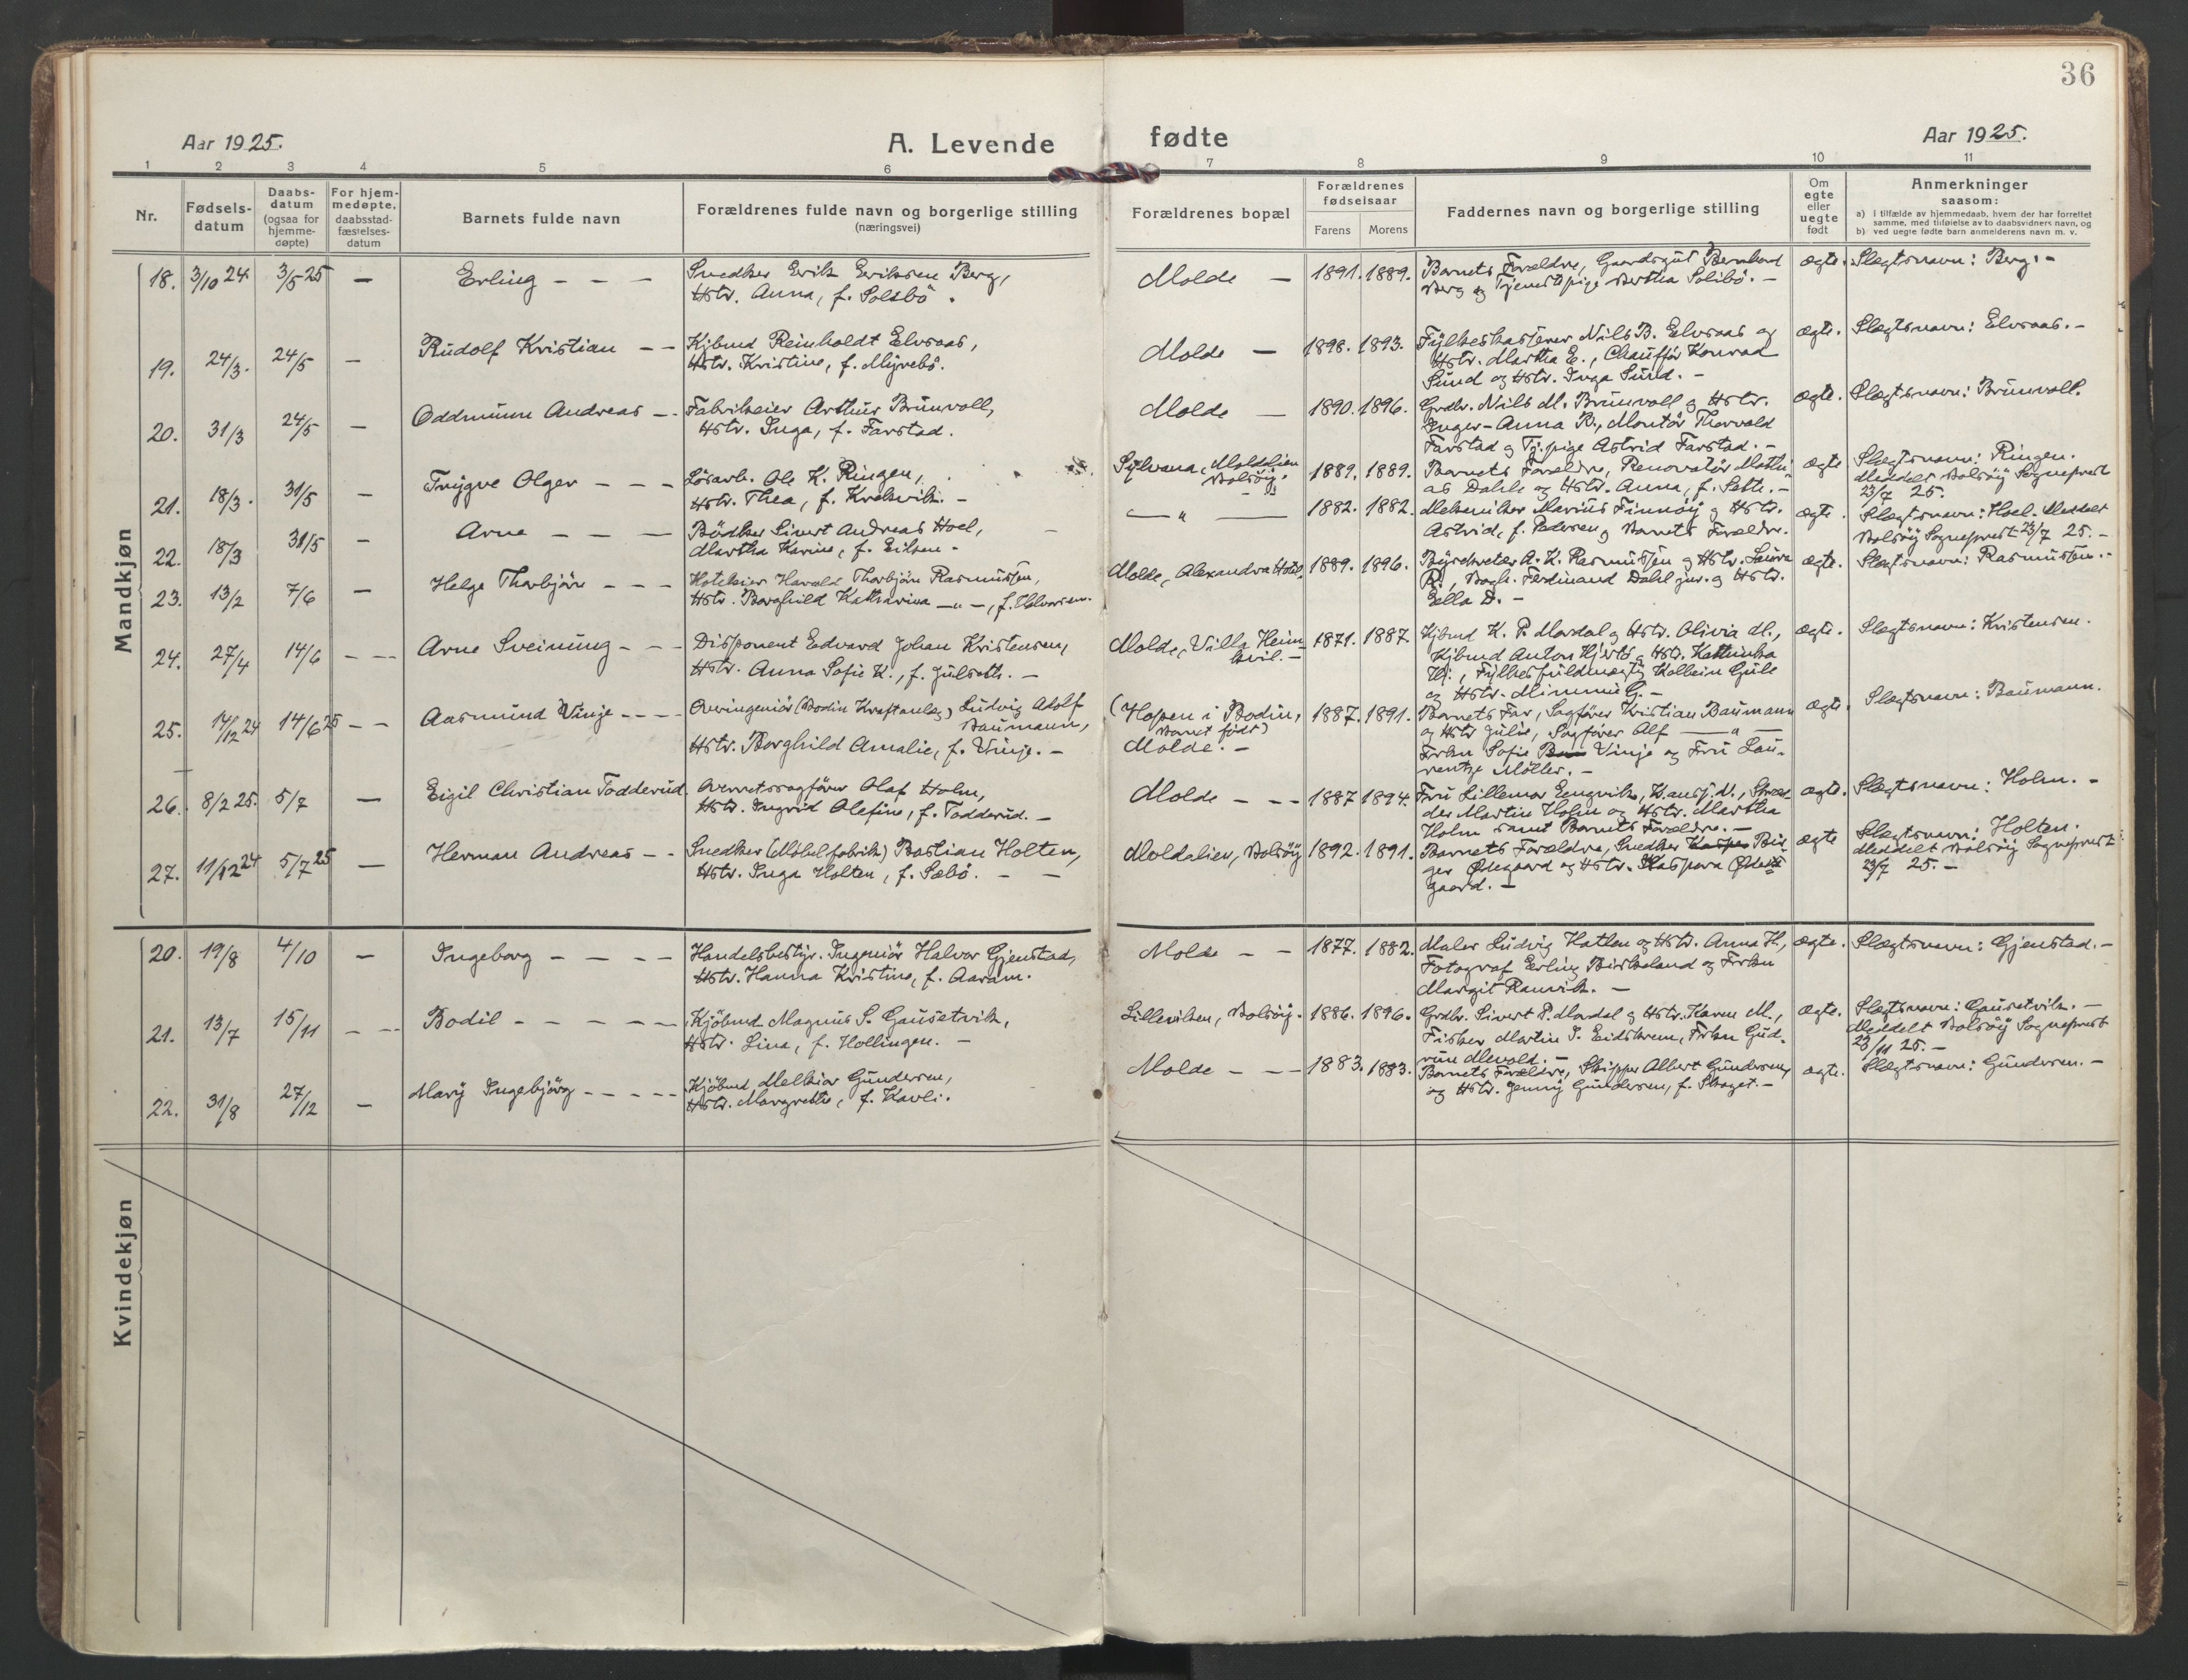 36
Aar 1925.
A. Levende fødte
Aar 1925.
1 2 3 4 5 6 7 8 9 10 11
Nr.
Fødsels-
datum
Daabs-
datum
(ogsaa for
hjemme-
døpte)
For hjem-
medøpte,
daabsstad-
fæstelses-
datum
Barnets fulde navn
Forældrenes fulde navn og borgerlige stilling
(næringsvei)
Forældrenes bopæl
Forældrenes
fødselsaar
Farens Morens
Faddernes navn og borgerlige stilling
Om
egte
eller
uegte
født
Anmerkninger
saasom:
a) i tilfælde av hjemmedaab, hvem der har forrettet
samme, med tilføielse av to daabsvidners navn, og
b) ved uegte fødte barn anmelderens navn m. v.
Mandkjøn
18. 3/10 24. 3/5 25 — Erling - - -
Snedker Erik Eriksen Berg,
Hstr. Anna, f. Solsbö.
Molde — 1891. 1889.
Barnets Forældre, Gaardsgut Bernhard
Berg og Tjenestpige Bertha Solibö. -
ægte. Slægtsnavn: Berg. -
19. 24/3. 24/5 — Rudolf Kristian - -
Kjbmd Reinholdt Elvsaas,
Hstr. Kristine, f. Myrebö.
Molde — 1898. 1893.
Fylkeskasserer Nils B. Elvsaas og
Hstr. Martha E., Chauffør Konrad
Sund og Hstr. Inga Sund. -
ægte. Slægtsnavn: Elvsaas. -
20. 31/3 24/5 — Oddmunn Andreas - -
Fabrikeier Arthur Brunvoll,
Hstr. Inga, f. Farstad.
Molde — 1890. 1896.
Grdbr. Nils M. Brunvoll og Hstr.
Inger-Anna B., Montör Thorvald
Farstad og Tj.pige Astrid Farstad. -
ægte. Slægtsnavn: Brunvoll.
21. 18/3. 31/5 — Trygve Olger - - -
Lösarb. Ole K. Ringen,
Hstr. Thea, f. Krekvik. -
Sylvana, Moldelien
Bolsöy. 1889. 1889.
Barnets Forældre, Renovatör Mathi-
as Dahle og Hstr. Anna, f. Seth. -
ægte Slægtsnavn: Ringen.
Meddelt Bolsöy Sogneprest
23/7 25.
22. 18/3 31/5 Arne - - -
Bödker Sivert Andreas Hoel,
Martha Karine, f. Eilsen. -
— " — 1882. 1882.
Mekaniker Marius Finnöy og Hstr.
Astrid, f. Pedersen og Barnets Forældre.
ægte. Slægtsnavn: Hoel. Meddelt
Bolsöy Sogneprest 23/7 25. -
23. 13/2 7/6 — Helge Thorbjörn - - -
Hoteleier Harald Thorbjörn Rasmussen,
Hstr. Borghild Katharina —"—, f. Halvorsen.
Molde, Alexandra Hotel. 1889. 1896.
A. K. Rasmussen og Hstr. Laura
R., Bagb. Ferdinand Dahl jun. og Hstr.
Ella D. -
ægte. Slægtsnavn: Rasmussen. -
24. 27/4 14/6 - -- Arne Sveinung - - -
Disponent Edvard Johan Kristensen,
Hstr. Anna Sofie K., f. Julseth. -
Molde, Villa Heim-
kvil. - 1871. 1887.
Kjbmd K. P. Mordal og Hstr. Olivia M.,
Kjbmd Anton Hjertö og Hstr. Kathinka
Hj., Fylkesfuldmægtig Kolbein Gule
og Hstr. Mimmi G. -
ægte. Slægtsnavn: Kristensen.
25. 17/12 24 14/6 25 - - Aasmund Vinje - - - -
Overingeniör (Bodin Kraftanlæg) Ludvig Adolf
Baumann,
Hstr. Borghild Amalie, f. Vinje. -
(Hopen i Bodin,
Barnet født)
Molde. - 1887. 1891.
Barnets Far, Sagfører Kristian Baumann
og Hstr Julie, Sagfører Alf — " —
Frkn Sofie Vinje og Fru Lau-
rentze Möller. -
ægte. Slægtsnavn: Baumann.
26. 8/2 25. 5/7 — Eigil Christian Todderud.
Overretssagfører Olaf Holm,
Hstr. Ingrid Olefine, f. Todderud. -
Molde - - - 1887 1894.
Fru Lillemor Lengvik, Kr.sund. N., Skræd-
der Martin Holm og Hstr. Martha
Holm samt Barnets Forældre. -
ægte. Slægtsnavn: Holm. -
27. 11/12 24 5/7 25 — Herman Andreas - -
Snedker (Möbelfabrik) Bastian Holten,
Hstr. Inga Holten, f. Sæbö. - -
Moldelien, Bolsöy 1892. 1891.
Barnets Forældre, Snedker Kasper Bir-
ger Ødegaard og Hstr. Kaspara Øde-
gaard. -
ægte Slægtsnavn: Holten.
Meddelt Bolsöy Sogneprest
23/7 25. -
Kvindekjøn
20. 19/8 4/10 — Ingeborg - - - -
Handelsbestyr. Ingeniör Halvor Gjenstad,
Hstr. Hanna Kristine, f. Aaram.
Molde - - 1877. 1882.
Maler Ludvig Hatlen og Hstr. Anna H.,
Fotograf Erling Birkeland og Frkn
Margit Ranvik. -
ægte. Slægtsnavn: Gjenstad. -
21. 13/7 15/11 - -- Bodil - - - - -
Kjöbmd Magnus S. Gausetvik,
Hstr. Lina, f. Hollingen. -
Lilleviken, Bolsöy. 1886. 1896.
Grdbr. Sivert P. Mordal og Hstr. Karen M.,
Fisker Martin J. Eidskrem, Frkn Gud-
run Mevold. -
ægte. Slægtsnavn: Gausetvik. -
Meddelt Bolsöy Sogneprest
23/11 25. -
22. 31/8 27/12 — Mary Ingebjörg - - - -
Kjöbmd Melkior Gundersen,
Hstr. Margrethe, f. Kavli.
Molde - - - 1883. 1883.
Barnets Forældre, Skipper Albert Gundersen,
og Hstr. Jenny Gundersen, f. Skaget. -
ægte. Slægtsnavn: Gundersen. -